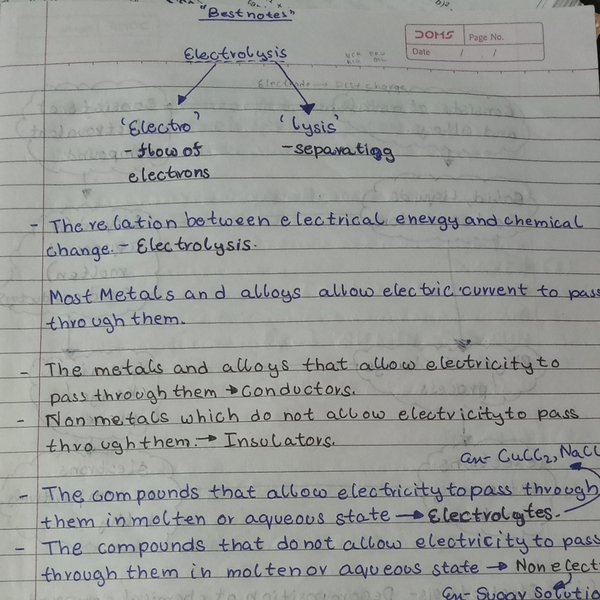 "Best notes"
DOMS Page No.
Date / /
Electrolysis
'Electro' 'Lysis'
- flow of - separating
electrons
- The relation between electrical energy and chemical
change. - Electrolysis.
Most Metals and alloys allow electric current to pass
through them.
- The metals and alloys that allow electricity to
pass through them → Conductors.
- Non metals which do not allow electricity to pass
through them. → Insulators.
CuCl2, NaCl
- The compounds that allow electricity to pass through
them in molten or aqueous state → Electrolytes.
- The compounds that do not allow electricity to pass
through them in molten or aqueous state → Non elect
Sugar Solutio